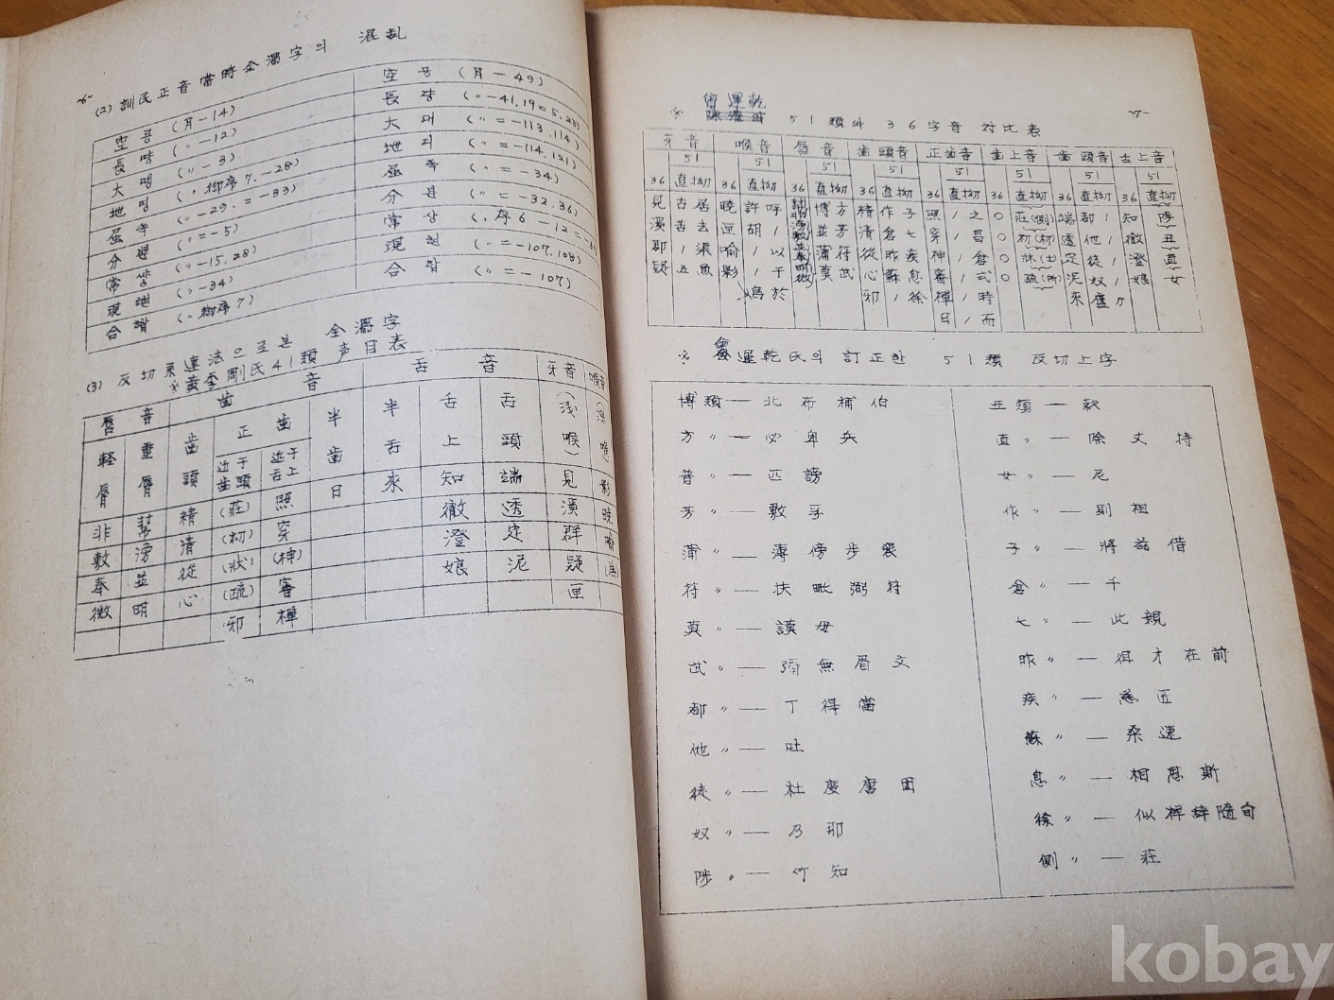 -6-
(2) 訓民正音當時全濁字의 混亂
空 콩 (月-14)
長 땽 (〃-12)
大 땡 (〃-3)
地 띵 (〃御序7.-28)
屈 (〃-29.=-33)
分 뻔 (〃=-5)
常 썅 (〃-15.28)
現 현 (〃-34)
合 합 (〃御序7)
空 공 (月-49)
長 쟝 (〃-41.19=5.23)
大 대 (〃=-113.114)
地 디 (〃=-114.121)
屈 (〃=-34)
分 분 (〃=-32.36)
常 샹 (〃序6-12=-6
現 현 (〃=-107.108)
合 합 (〃=-107)
(3) 反切系連法으로본 全濁字
※黃季剛氏41類 声目表
脣音 齒音 舌音 牙音 喉音
輕脣 重脣 齒頭 正齒 半齒 半舌 舌上 舌頭 (浅喉)
近于齒頭 近于舌上
非 幫 精 (莊) 照 日 來 知 端 見 影
敷 滂 清 (初) 穿 徹 透 溪 曉
奉 並 從 (狀) (神) 澄 定 群
微 明 心 (疏) 審 娘 泥 疑
邪 禪 匣
-7-
曾運乾
※ 51類와 36字音 対比表
牙音 喉音 脣音 齒頭音 正齒音 齒上音 齒頭音 舌上音
51 51 51 51 51 51 51 51
36 直拗 36 直拗 36 直拗 36 直拗 36 直拗 36 直拗 36 直拗 36 直拗
見 古居 曉 許呼 博方 精 作子 照 / 之 ○ 莊(側) 端 都 / 知 陟
溪 苦去 匣 胡 / 並芳 清 倉七 穿 / 昌 ○ 初(初) 透 他 / 徹 丑
郡 / 渠 喩 / 以 蒲符 從 昨疾 神 / 食 ○ 牀(士) 定 徒 / 澄 直
疑 五魚 影 / 于 莫武 心 蘇息 審 / 式 ○ 疏(所) 泥 奴 / 娘 女
烏於 邪 / 徐 禪 / 時 來 盧力
日 / 而
※ 曾運乾氏의 訂正한 51類 反切上字
博類 — 北布補伯
方〃 — 必卑兵
普〃 — 匹謗
芳〃 — 敷孚
蒲〃 — 薄傍步裴
符〃 — 扶毗弼符
莫〃 — 謨母
武〃 — 彌無眉文
都〃 — 丁得當
他〃 — 吐
徒〃 — 杜度唐田
奴〃 — 乃那
陟〃 — 竹知
丑類 — 敕
直〃 — 除丈持
女〃 — 尼
作〃 — 則祖
子〃 — 將茲借
倉〃 — 千
七〃 — 此親
昨〃 — 徂才在前
疾〃 — 慈匠
蘇〃 — 桑速
息〃 — 相思斯
徐〃 — 似祥辞隨旬
側〃 — 莊
kobay